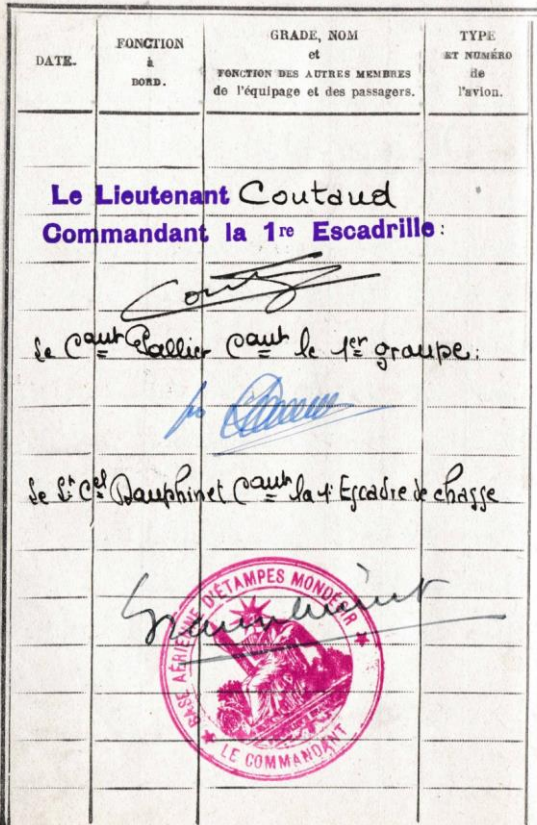 DATE.
FONCTION
à
BORD.
GRADE, NOM
et
FONCTION DES AUTRES MEMBRES
de l'équipage et des passagers.
TYPE
ET NUMÉRO
de
l'avion.
Le Lieutenant Coutaud
Commandant la 1re Escadrille:
Le Caut Pallier Caut le 1er groupe:
po
Le Lt Cel Dauphinet Caut la 4e Escadre de chasse
BASE AÉRIENNE D'ÉTAMPES MONDÉSIR
LE COMMANDANT